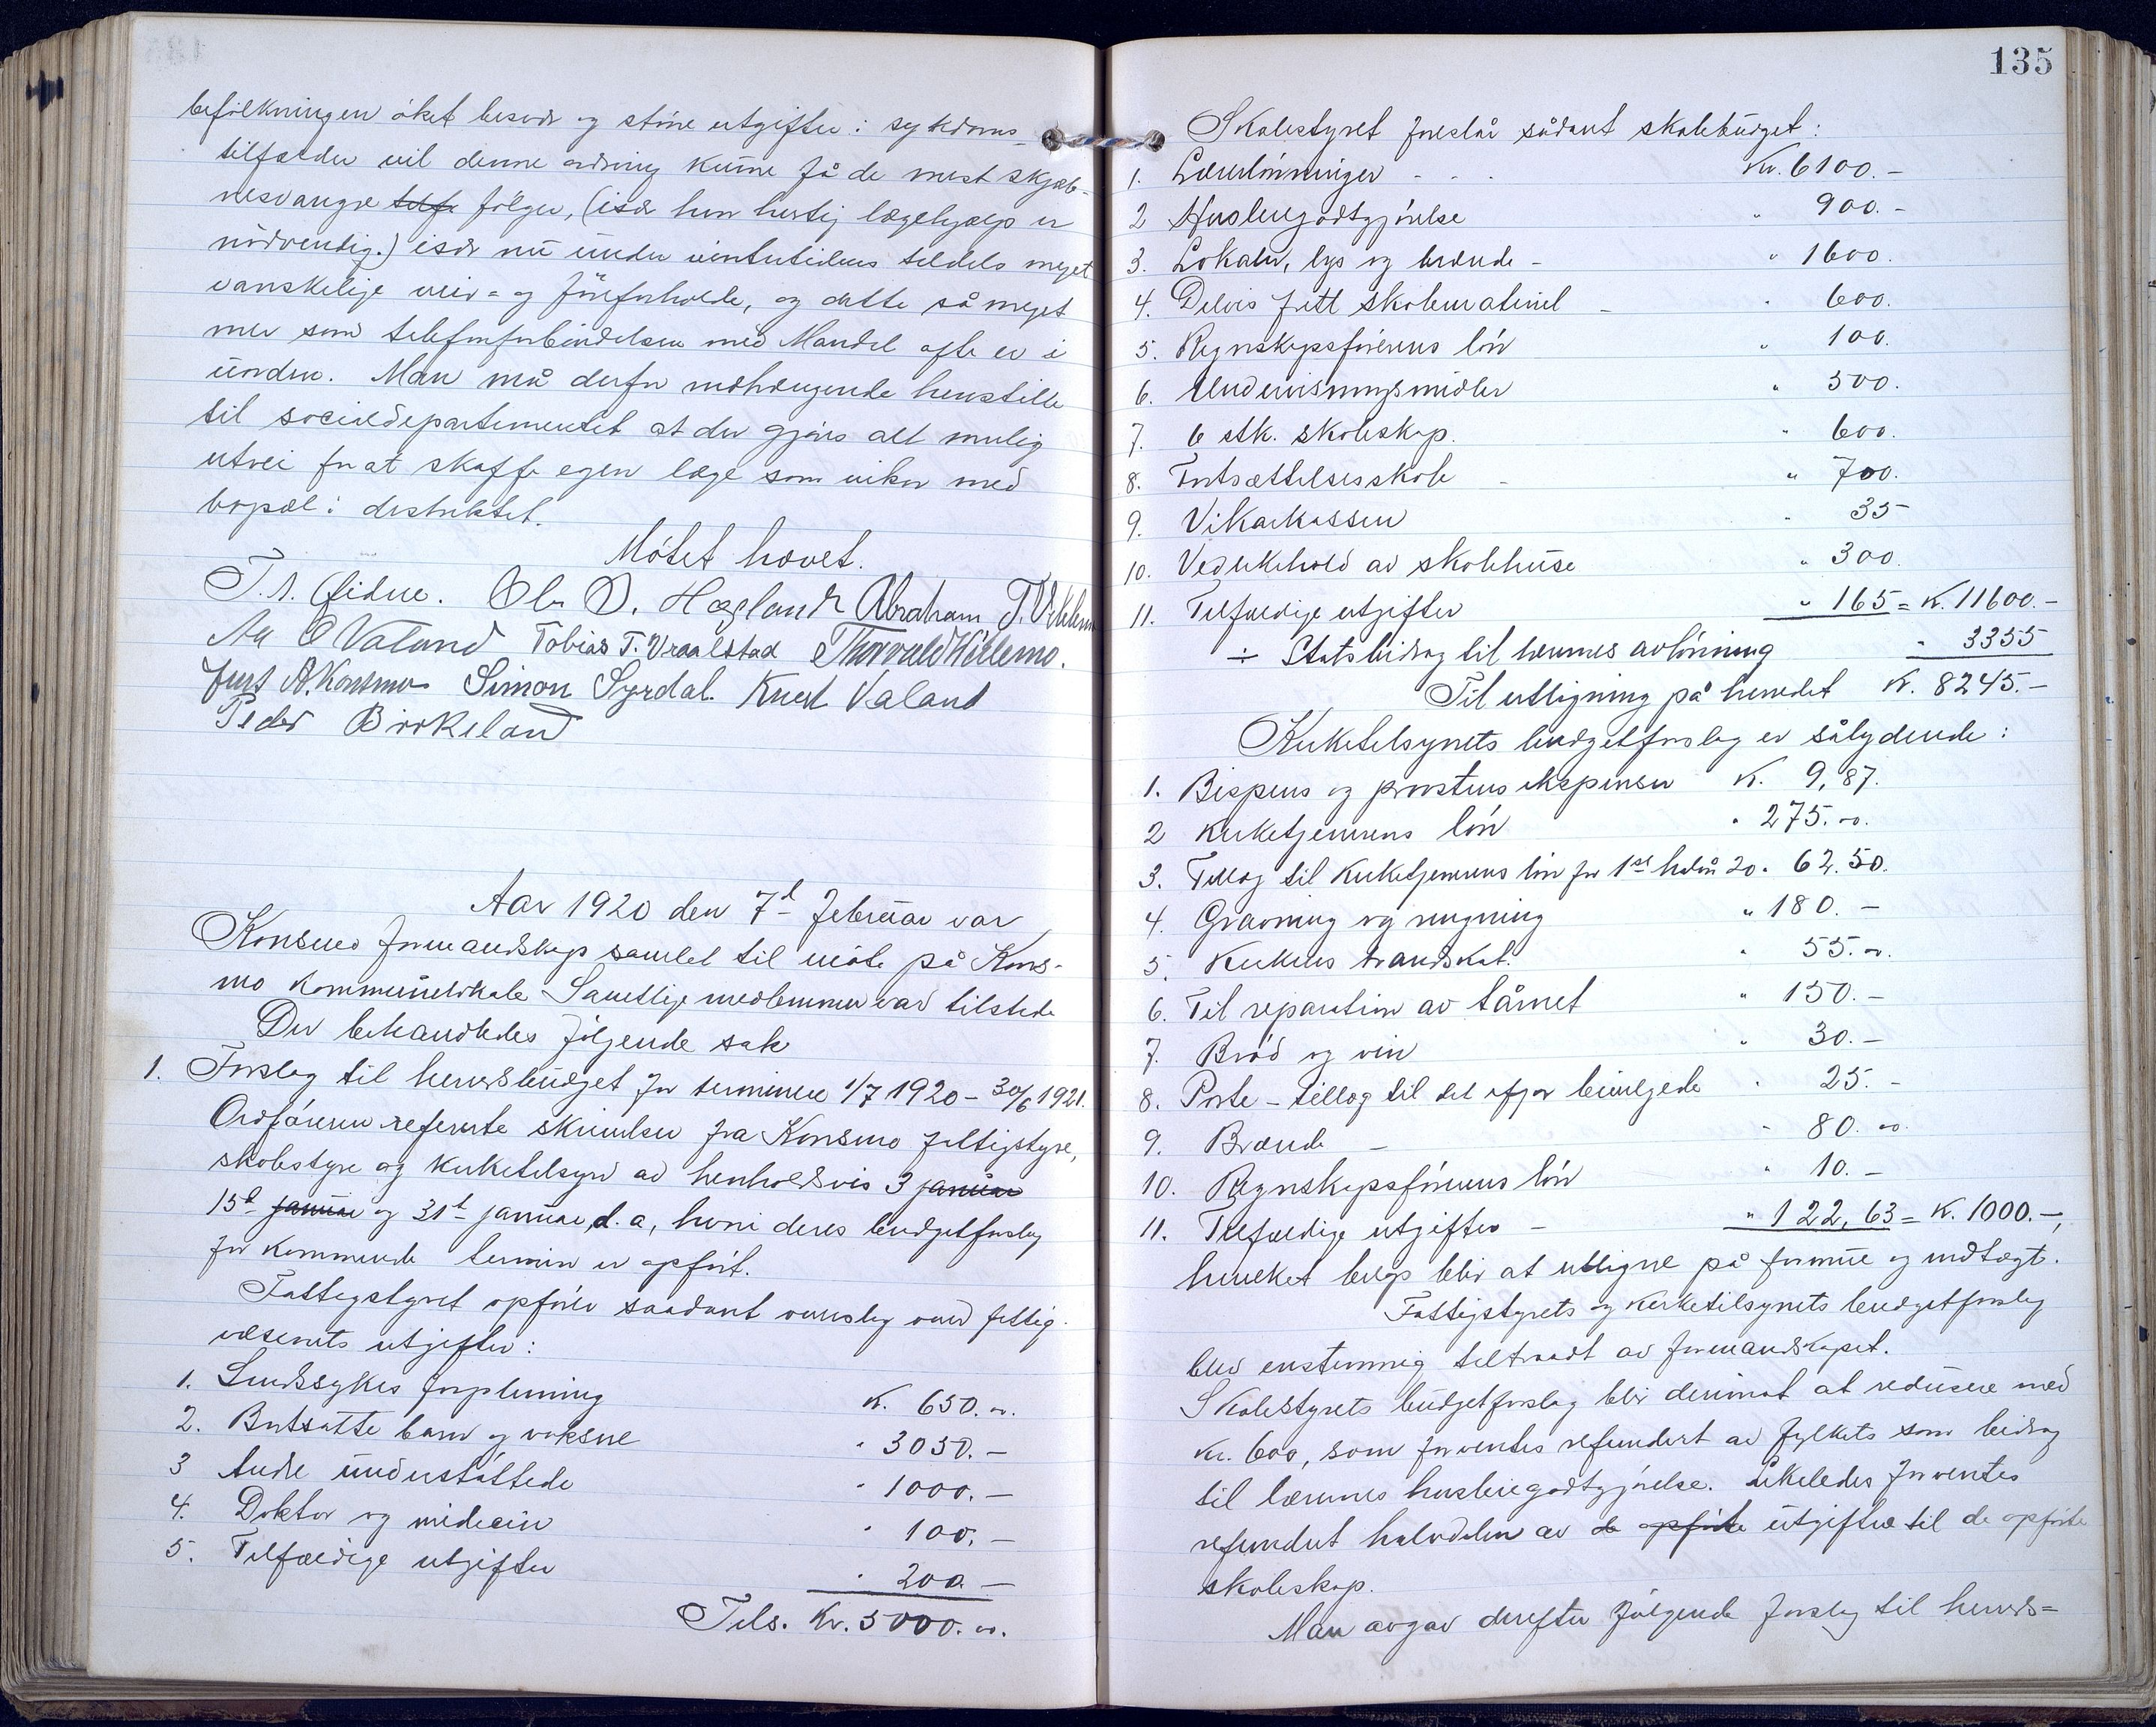 befolkningen øket besvær og større utgifter i sykdoms-
tilfælder vil denne ordning kunne få de mest skjæb-
nesvangre følger, (især hvor hurtig lægehjælp er
nødvendig.) især nu under vintertidens tildels meget
vanskelige veir- og føreforholde, og dette så meget
mer som telefonforbindelsen med Mandal ofte er i
uorden. Man må derfor indtrængende henstille
til socialdepartementet at der gjøres alt mulig
utvei for at skaffe egen læge som vikar med
bopæl i distriktet.
Møtet hævet.
T. A. Eidne. Ole O. Hægland Abraham T. Urkelmo
Aa O Valand Tobias T. Vraalstad Thorvald Killemo.
Jens A. Konsmo Simon Syrdal. Knut Valand
Peder Birkeland
Aar 1920 den 7d februar var
Konsmo formandskap samlet til møte på Kons-
mo kommunelokale Samtlige medlemmer var tilstede
Der behandledes følgende sak
1. Forslag til herredsbudget for terminen 1/7 1920 - 30/6 1921.
Ordføreren refererte skrivelser fra Konsmo fattigstyre,
skolestyre og kirketilsyn av henholdsvis 3 januar
15d januar og 31t januar, d. a, hvori deres budgetforslag
for kommende termin er opført.
Fattigstyret opfører saadant overslag over fattig-
væsenets utgifter:
1. Sindssykes forpleining K. 650.oo.
2. Bortsatte barn og voksne " 3050.-
3 Andre understøttede " 1000.-
4. Doktor og medecin " 100.-
5. Tilfældige utgifter " 200.-
Tils. Kr. 5000.oo.
135
Skolestyret foreslår sådant skolebudget:
1. Lærerlønninger - . . Kr. 6100.-
2 Husleiegodtgjørelse " 900.-
3. Lokaler, lys og brænde - " 1600.
4. Delvis fritt skolemateriel - " 600.
5. Regnskapsførerens løn " 100.
6. Undervisningsmidler " 500.
7. 6 stk. skoleskap. " 600.
8. Fortsættelsesskole - " 700.
9. Vikarkassen " 35-
10. Vedlikehold av skolehuse " 300
11. Tilfældige utgifter " 165 = K. 11600.-
÷ Statsbidrag til lærernes avlønning " 3355
Til utligning på herredet K. 8245.-
Kirketilsynets budgetforslag er sålydende:
1. Bispens og provstens ekspenser K. 9,87.
2 Kirketjenerens løn " 275.oo.
3. Tillæg til Kirketjenerens løn for 1ste halvår 20 " 62.50.
4. Gravning og ringning " 180.-
5. Kirkens brandskat. " 55.oo.
6. Til reparation av tårnet " 150.-
7. Brød og vin " 30.-
8. Porte - tillæg til det ifjor bevilgede " 25.-
9. Brænde - " 80.oo.
10. Regnskapsførerens løn " 10.-
11. Tilfældige utgifter - " 122,63 = K. 1000.-,
hvilket beløp blir at utligne på formue og indtægt.
Fattigstyrets og Kirketilsynets budgetforslag
blev enstemmig tiltraadt av formandskapet.
Skolestyrets budgetforslag blir derimot at reducere med
kr. 600, som forventes refundert av fylket som bidrag
til lærernes husleiegodtgjørelse. Likeledes forventes
refundert halvdelen av de opførte utgifter til de opførte
skoleskap.
Man avgav derefter følgende forslag til herreds=